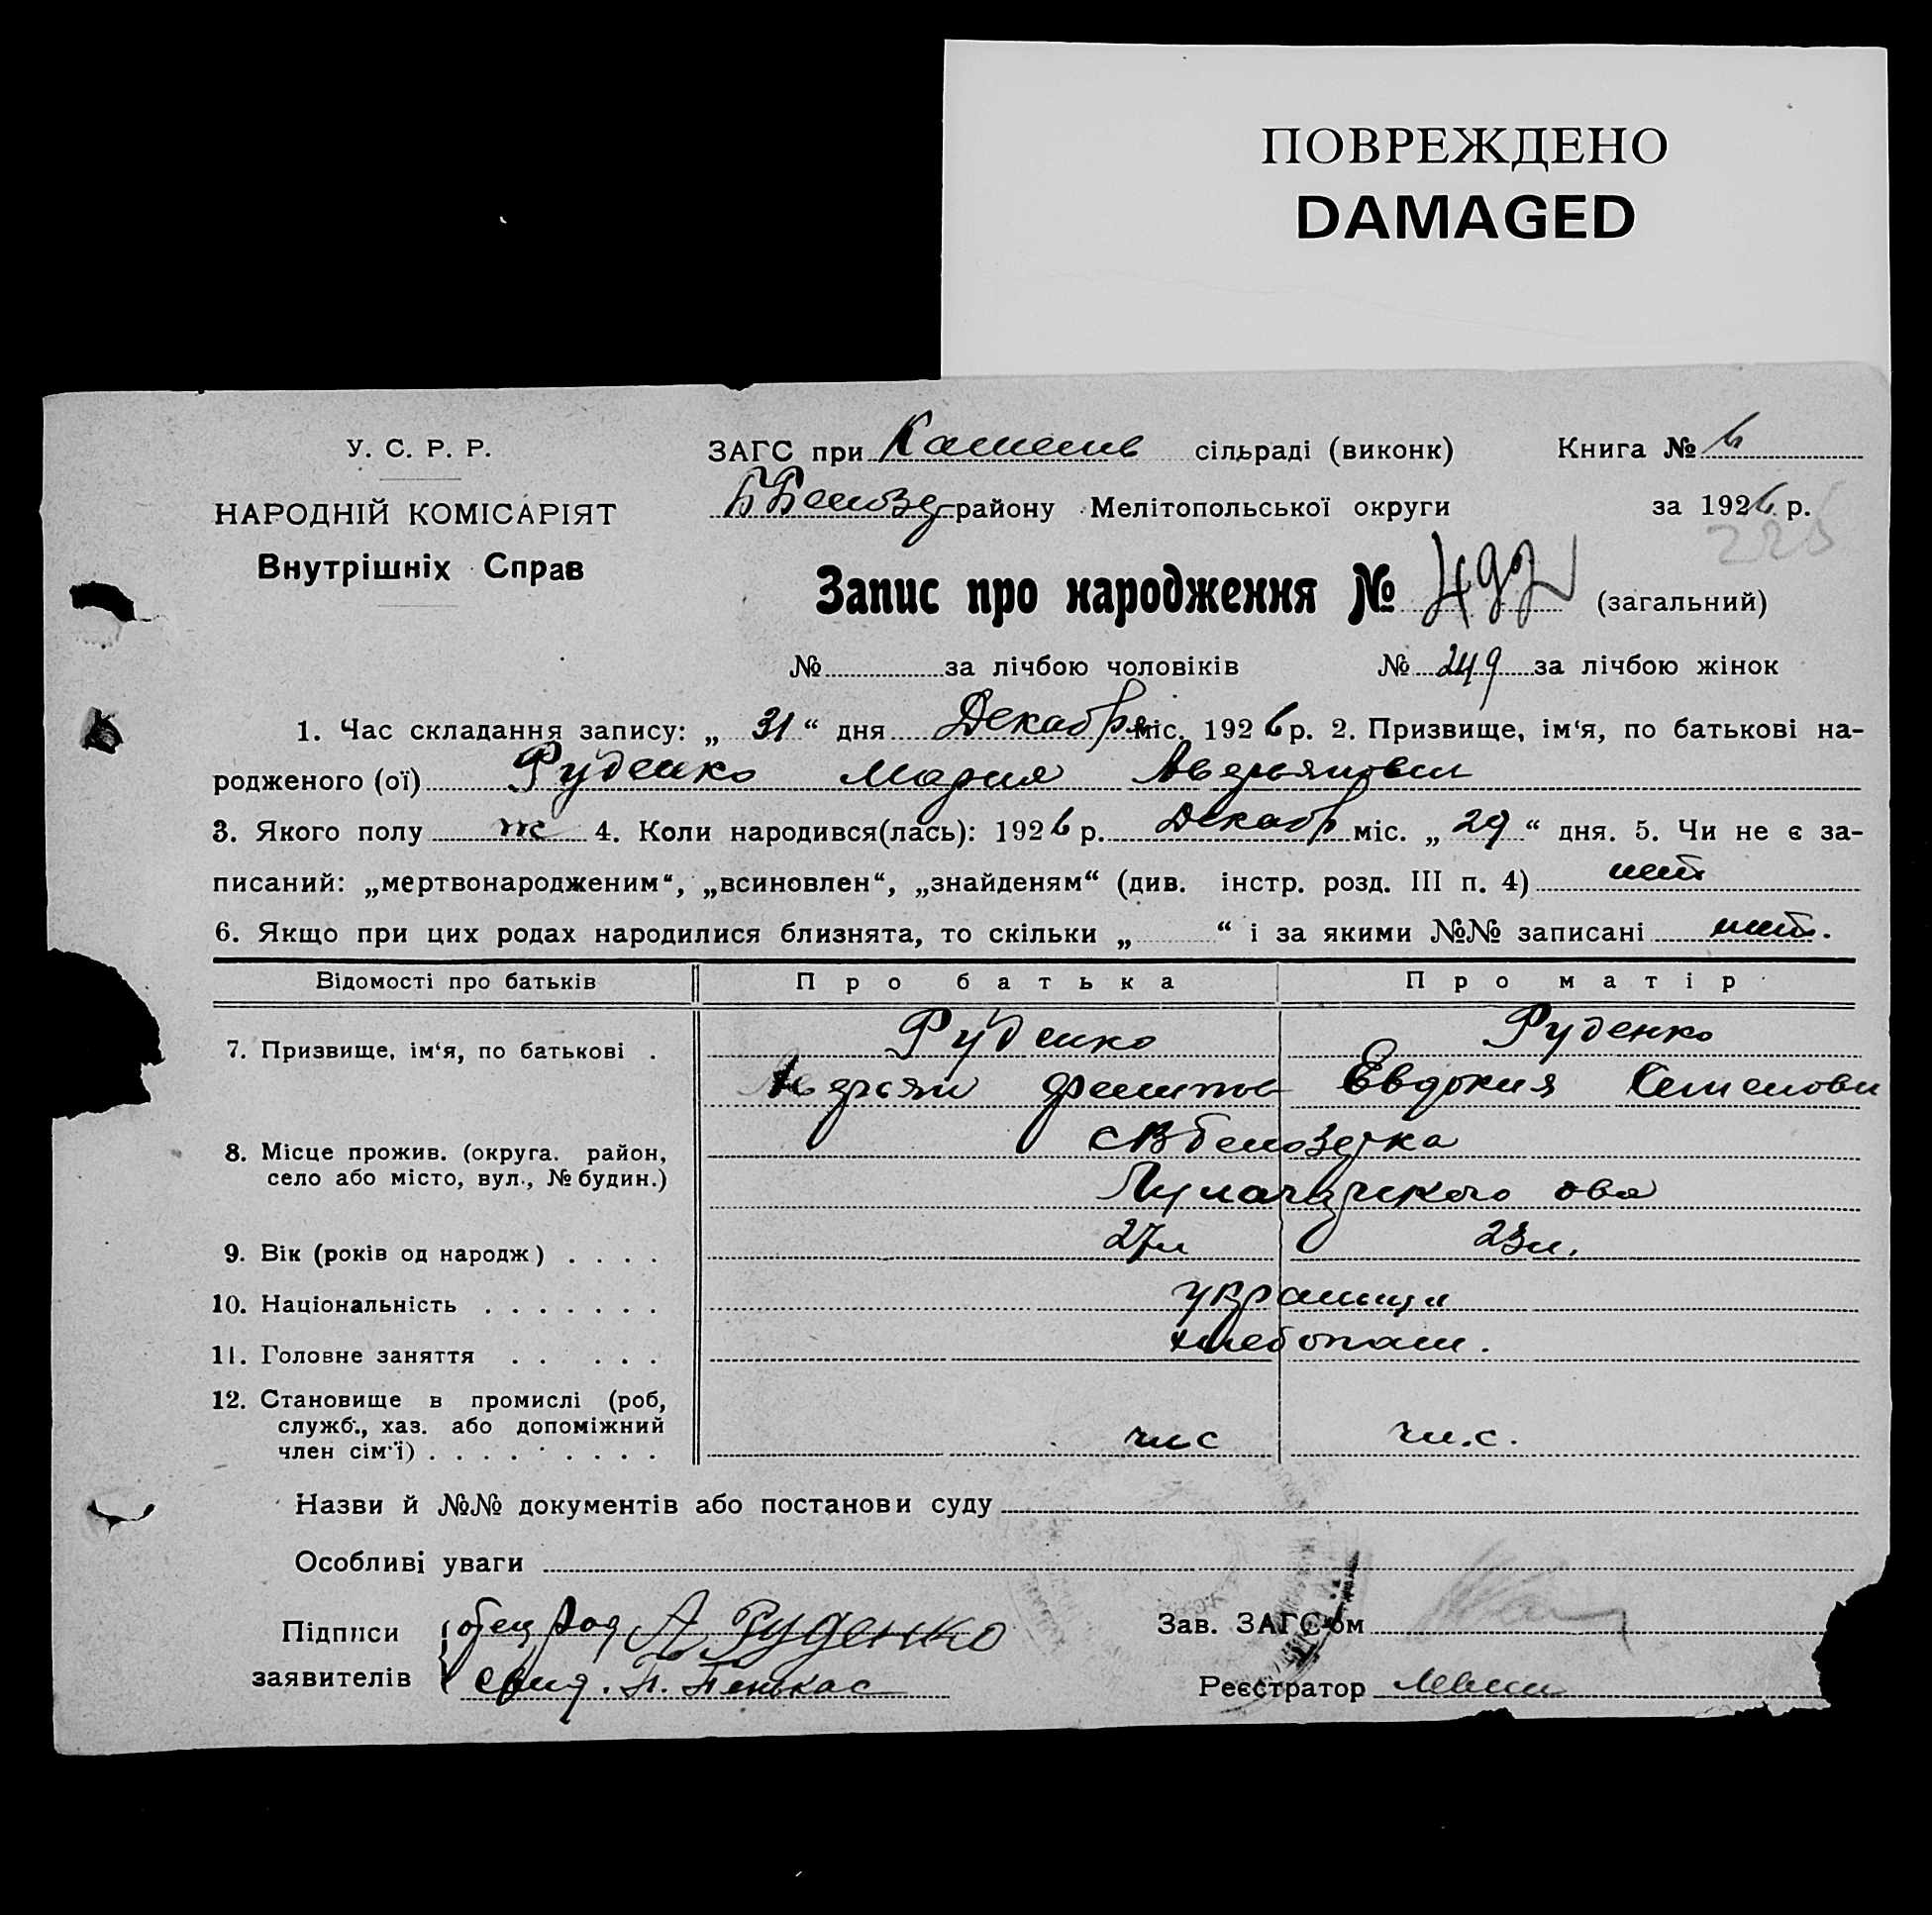 ПОВРЕЖДЕНО
DAMAGED
У. С. Р. Р.
НАРОДНІЙ КОМІСАРІЯТ
Внутрішніх Справ
ЗАГС при Каменс сільраді (виконк)
Книга № 6
району Мелітопольської округи
за 1926 р.
225
Запис про народження № 492 (загальний)
№ за лічбою чоловіків № 249 за лічбою жінок
1. Час складання запису: „ 31 “ дня Декабря міс. 1926 р. 2. Призвище, ім‘я, по батькові на-
родженого (ої) Руденко Мария Аверьяновн
3. Якого полу ж 4. Коли народився(лась): 1926 р. Декабр міс. „ 29 “ дня. 5. Чи не є за-
писаний: „мертвонародженим“, „всиновлен“, „знайденям“ (див. інстр. розд. III п. 4) нет
6. Якщо при цих родах народилися близнята, то скільки „ “ і за якими №№ записані нет.
Відомості про батьків Про батька Про матір
7. Призвище, ім‘я, по батькові . Руденко Руденко
Аверьян Филипов Евдокия Семеновн
8. Місце прожив. (округа. район,
село або місто, вул., № будин.)
Белозерка
9. Вік (років од народж) . . . . 27 л 23 л.
10. Національність . . . . . . . украинци
11. Головне заняття . . . . . хлебопаш.
12. Становище в промислі (роб,
служб., хаз. або допоміжний
член сім‘ї) . . . . . . . . чл с чл.с.
Назви й №№ документів або постанови суду
Особливі уваги
Підписи
заявителів
отец род А Руденко
свид. П.
Зав. ЗАГС-ом
Реєстратор